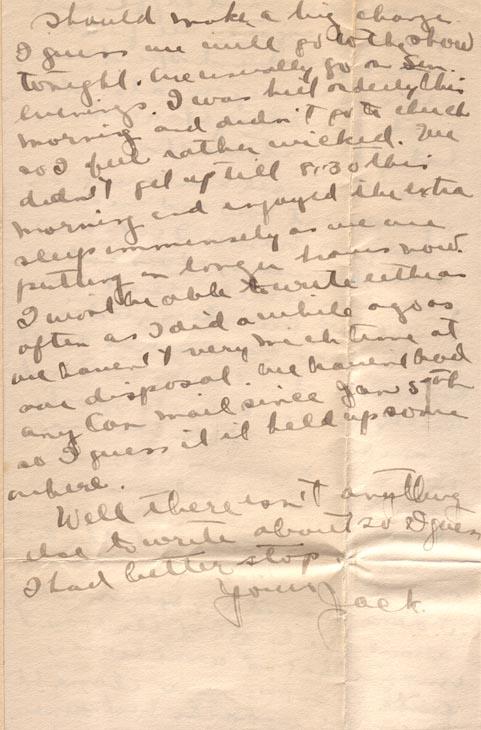 should make a big change.
I guess we will go to the show
tonight. We usually go on Sun.
evenings. I was hut orderly this
morning and didn't go to church
so I feel rather wicked. We
didn't get up till 8:30 this
morning and enjoyed the extra
sleep immensely as we are
putting in longer hours now.
I wont be able to write either as
often as I did a while ago as
we haven't very much time at
our disposal. We haven't had
any Can mail since Jan 5th
so I guess it is held up some
where.
Well there isn't anything
else to write about so I guess
I had better stop.
Yours Jack.